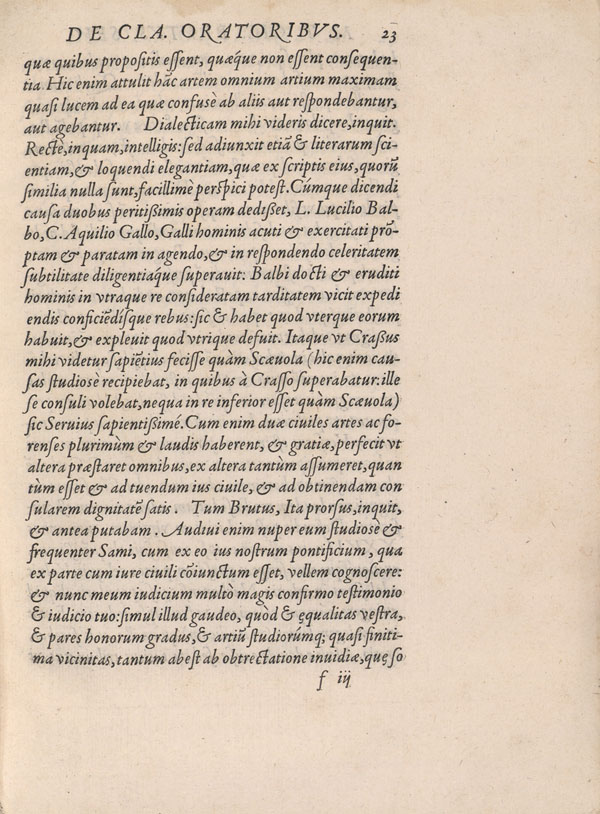 DE CLA. ORATORIBVS. 23
quæ quibus propositis essent, quæq́ue non essent consequen-
tia. Hic enim attulit hãc artem omnium artium maximam
quasi lucem ad ea quæ confusè ab aliis aut respondebantur,
aut agebantur. Dialecticam mihi videris dicere, inquit.
Rectè, inquam, intelligis: sed adiunxit etiã & literarum sci-
entiam, & loquendi elegantiam, quæ ex scriptis eius, quorũ
similia nulla sunt, facillimè perspici potest. Cúmque dicendi
causa duobus peritißimis operam dedißet, L. Lucilio Bal-
bo, C. Aquilio Gallo, Galli hominis acuti & exercitati prõ-
ptam & paratam in agendo, & in respondendo celeritatem
subtilitate diligentiaq́ue superauit: Balbi docti & eruditi
hominis in vtraque re consideratam tarditatem vicit expedi
endis conficiẽdísque rebus: sic & habet quod vterque eorum
habuit, & expleuit quod vtrique defuit. Itaque vt Craßus
mihi videtur sapiẽtius fecisse quàm Scæuola (hic enim cau-
sas studiosè recipiebat, in quibus à Crasso superabatur: ille
se consuli volebat, nequa in re inferior esset quàm Scæuola)
sic Seruius sapientissimé. Cum enim duæ ciuiles artes ac fo-
renses plurimùm & laudis haberent, & gratiæ, perfecit vt
altera præstaret omnibus, ex altera tantum assumeret, quan
tùm esset & ad tuendum ius ciuile, & ad obtinendam con
sularem dignitatẽ satis. Tum Brutus, Ita prorsus, inquit,
& antea putabam. Audiui enim nuper eum studiose &
frequenter Sami, cum ex eo ius nostrum pontificium, qua
ex parte cum iure ciuili cõiunctum esset, vellem cognoscere:
& nunc meum iudicium multò magis confirmo testimonio
& iudicio tuo: simul illud gaudeo, quod & ęqualitas vestra,
& pares honorum gradus, & artiũ studiorúmq; quasi finiti-
ma vicinitas, tantum abest ab obtrectatione inuidiæ, quę so
f iij